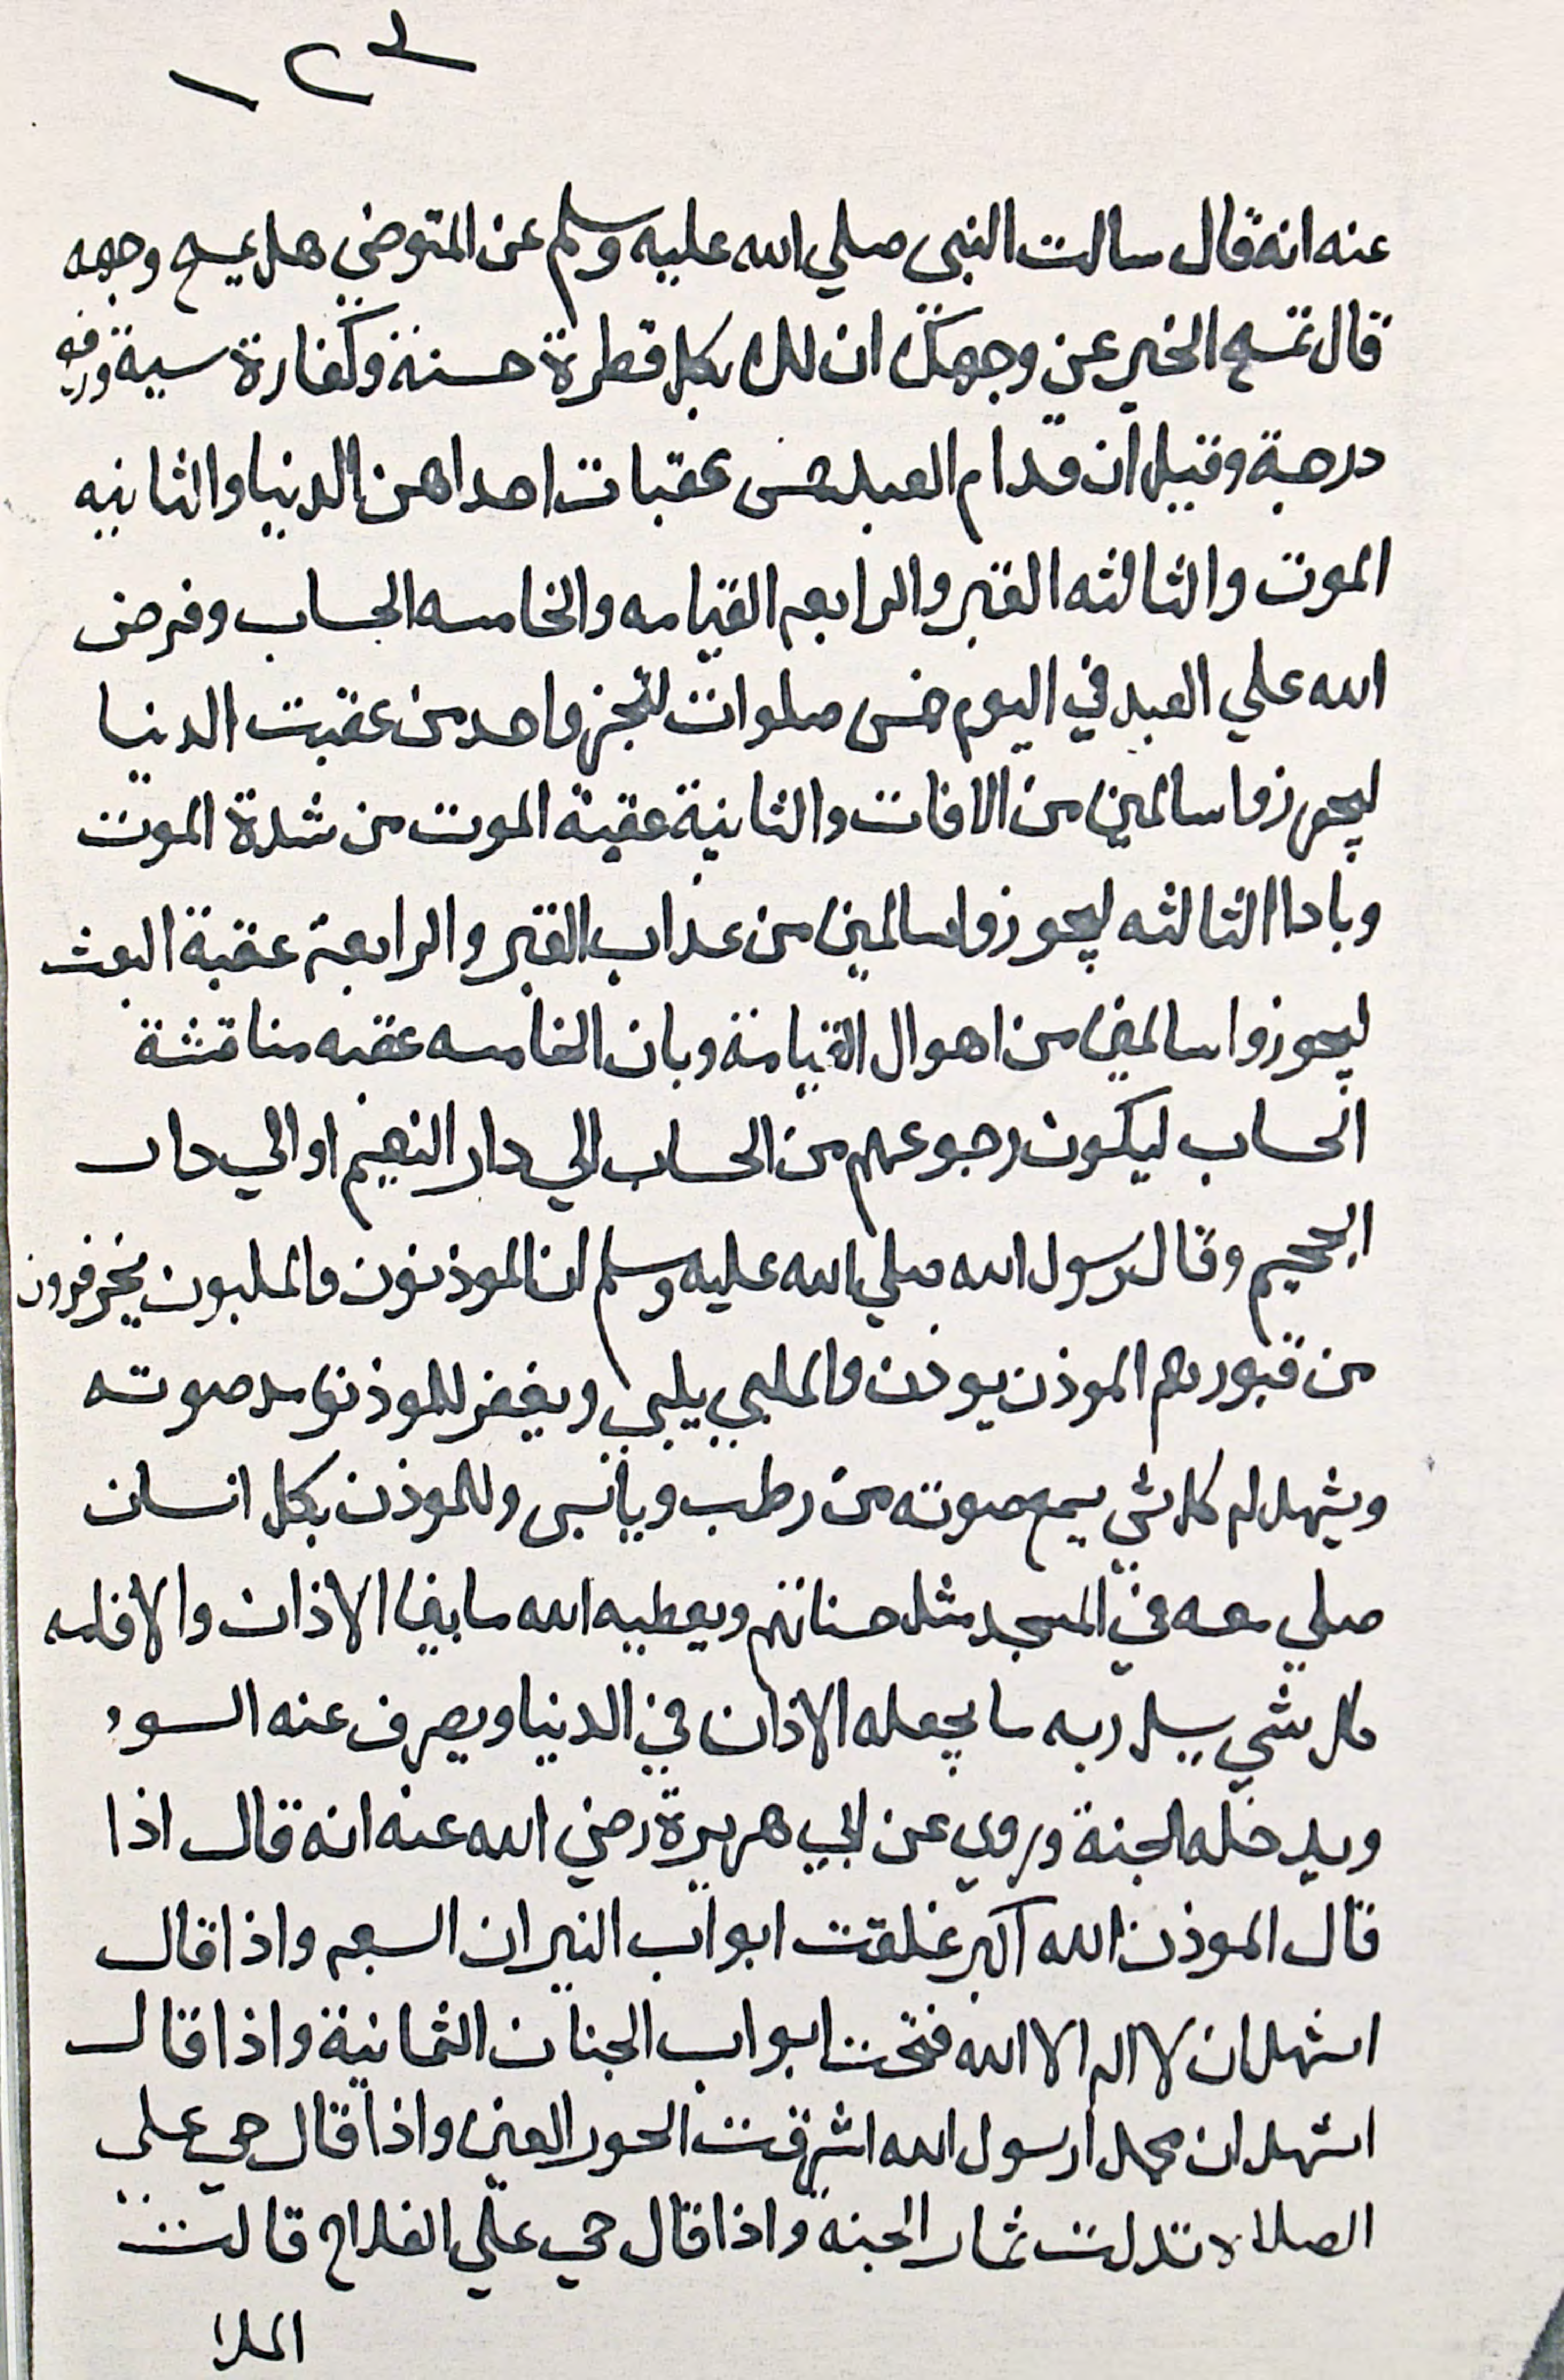 ١٢٣
عنه انه قال سالت النبي صلي الله عليه وسلم عن المتوضي هل يمسح وجهه
قال تمسح الخير عن وجهك ان لك بكل قطرة حسنة وكفارة سية ورفع
درجة وقيل ان قدام العبد خمس عقبات احداهن الدنيا والثانيه
الموت والثالثه القبر والرابعه القيامه والخامسه الحساب وفرض
الله علي العبد في اليوم خمس صلوات لتجز واحد من عقبت الدنيا
ليجوزوا سالمين من الافات والثانية عقبة الموت من شدة الموت
وبادا الثالثه ليجوزوا سالمين من عذاب القبر والرابعة عقبة البعث
ليجوزوا سالمين من اهوال القيامة وبان الخامسه عقبه مناقشة
الحساب ليكون رجوعهم من الحساب الي دار النعيم او الي دار
الجحيم وقال رسول الله صلي الله عليه وسلم ان الموذنون والملبون
من قبورهم الموذن يوذن والملبي يلبي ويغفر للموذن مد صوته
ويشهد له كل شي يسمع صوته من رطب ويابس وللموذن بكل انسان
صلي معه في المسجد مثل حسناتهم ويعطيه الله ما بين الاذان والاقامه
كل شي يسل ربه ما يجعله الاذان في الدنيا ويصرف عنه السوء
ويدخله الجنة وروي عن ابي هريرة رضي الله عنه انه قال اذا
قال الموذن الله اكبر غلقت ابواب النيران السبعه واذا قال
اشهد ان لا اله الا الله فتحت ابواب الجنان الثمانية واذا قال
اشهد ان محمدا رسول الله اشرقت الحور العين واذا قال حي علي
الصلاه تدلت ثمار الجنه واذا قال حي علي الفلاح قالت
الملا